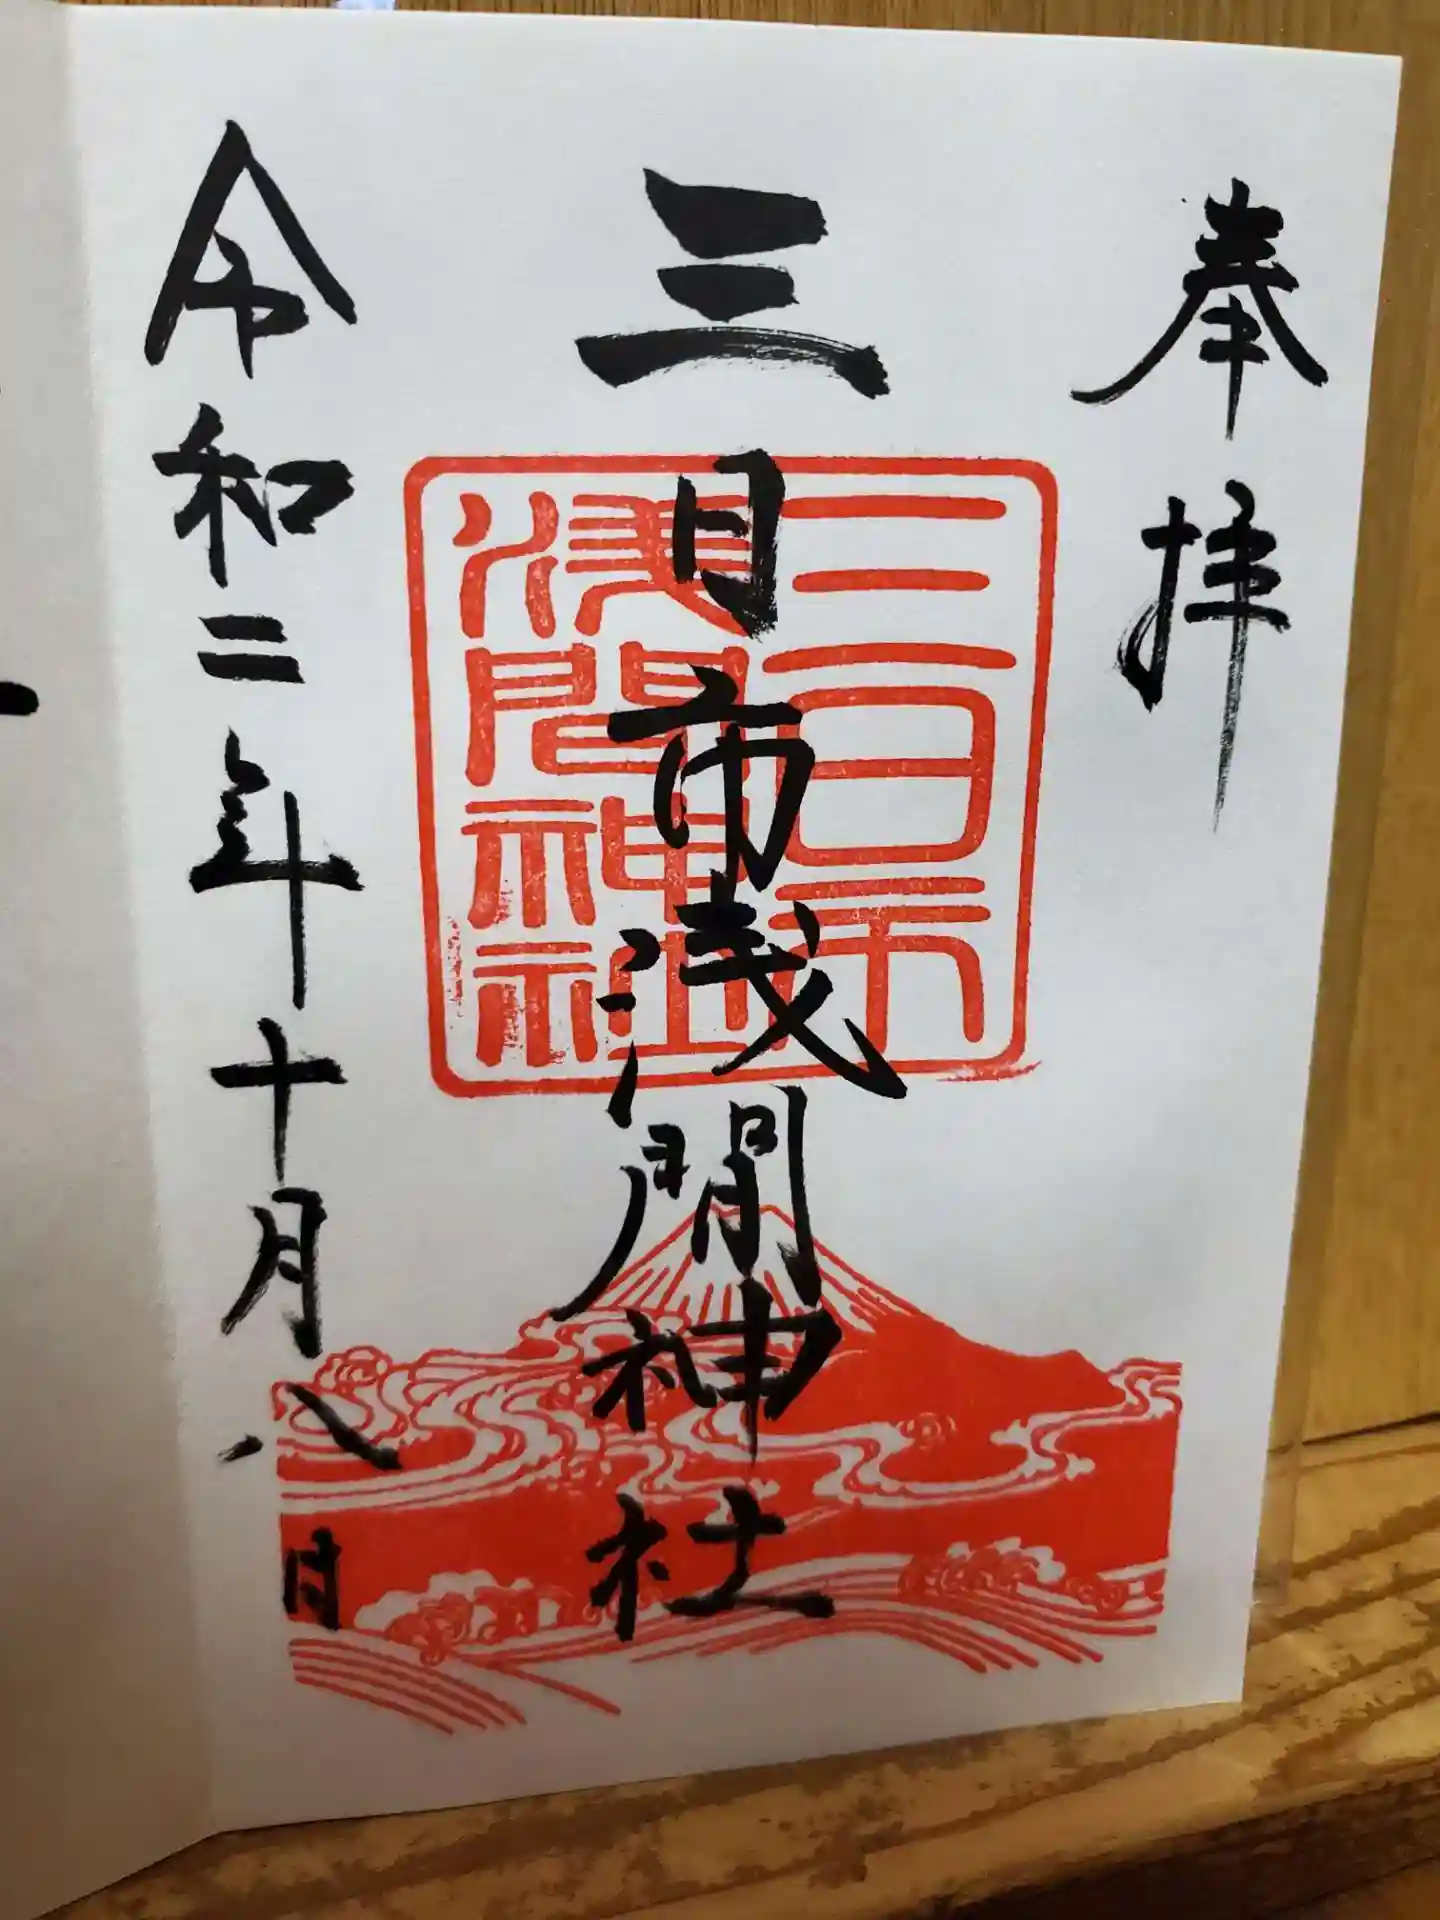 奉拝
三日市浅間神社
三日市
浅間神社
令和二年十月八日